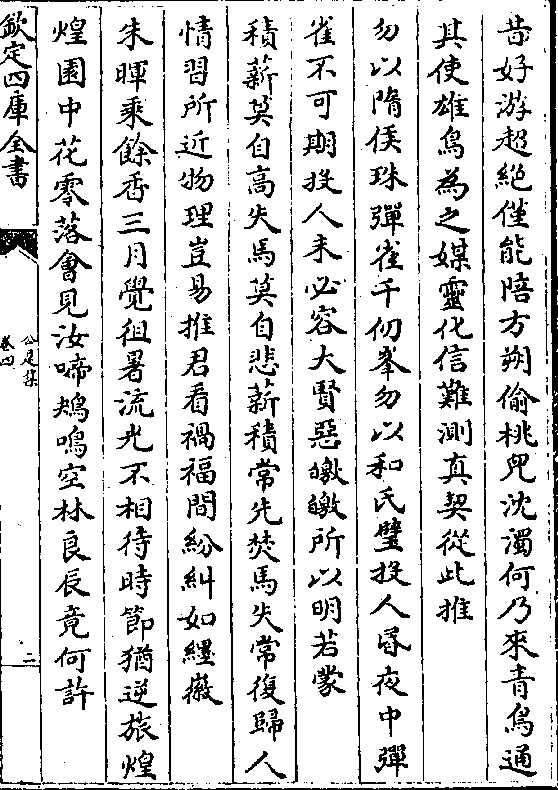 昔好游超絶僅能陪方朔偷桃兒沈濁何乃來青鳥通
其使雄鳥為之媒靈化信難測真契從此推
勿以隋侯珠彈雀千仞峯勿以和氏璧投人昏夜中彈
雀不可期投人未必容大賢惡皦皦所以明若蒙
積薪莫自高失馬莫自悲薪積常先焚馬失常復歸人
情習所近物理豈易推君看禍福間紛糾如纆徽
朱暉乘餘香三月覺徂暑流光不相待時節猶逆旅煌
煌園中花零落會見汝啼鴂鳴空林良辰竟何許
欽定四庫全書
公是集
卷四
二